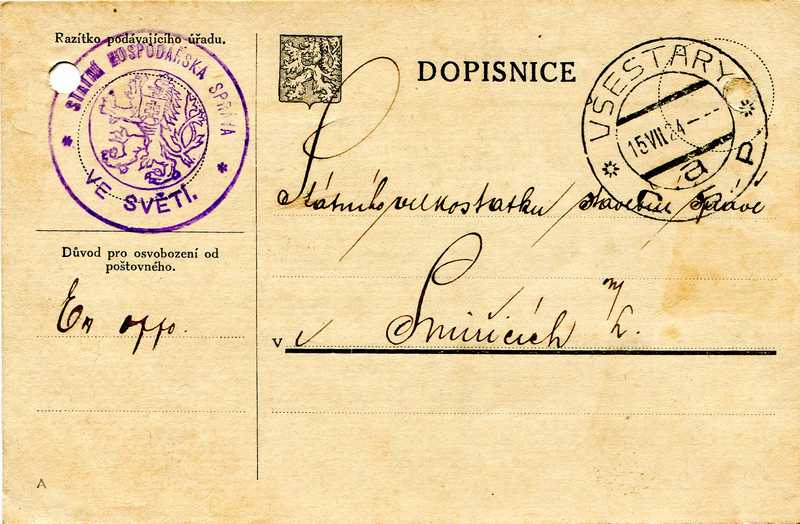 Razítko podávajícího úřadu.
STÁTNÍ HOSPODÁŘSKÁ SPRÁVA
VE SVĚTÍ.
DOPISNICE
VŠESTARY
15 VII 24
a
Státního velkostatku stavební správě
Důvod pro osvobození od
poštovného.
Ex offo.
v
Smiřicích n/L.
A